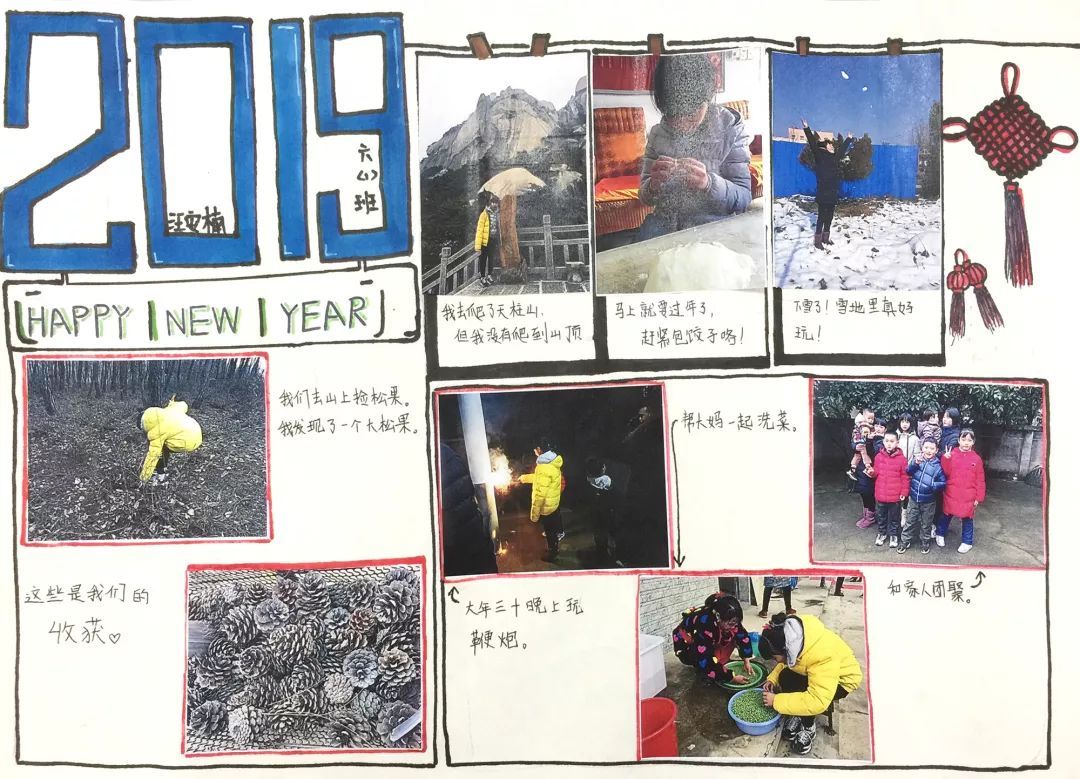 2019
六
班
HAPPY NEW YEAR
我去爬了天柱山,
但我没有爬到山顶
马上就要过年了,
赶紧包饺子咯!
下雪了!雪地里真好
玩!
我们去山上捡松果。
我发现了一个大松果。
这些是我们的
收获♡
帮大妈一起洗菜。
大年三十晚上玩
鞭炮。
和家人团聚。